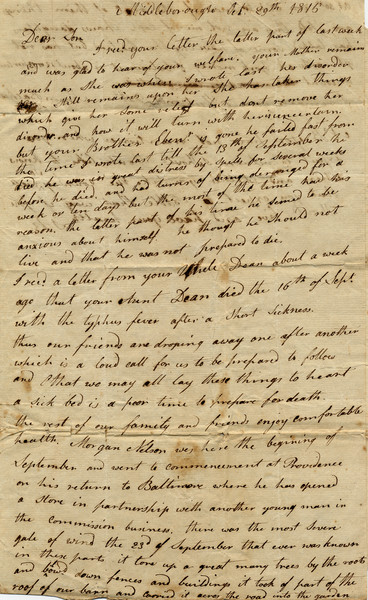 Middleborough Oct 29th 1815
Dear Son
I recd your letter the latter part of last week
and was glad to hear of your welfare, your Mother remain
much as She was when I wrote last her disorder
Still remains upon her She has taken things
which give her Some relief but dont remove her
disorder and how it will turn with her is uncertain,
but your Brother Ebenr is gone he failed fast from
the time I wrote last till the 13th of September he
died he was in great distress by Spells for Several weeks
before he died and had turns of being deranged for a
week or ten days but the most of the time had his
reason, the latter part of his time he Seemed to be
anxious about himself he thought he Should not
live and that he was not prepared to die.
I recd a letter from your Uncle Dean about a week
ago that your Aunt Dean died the 16th of Sept.
with the typhus fever after a Short Sickness.
thus our friends are droping away one after another
which is a loud call for us to be prepared to follow
and O that we may all lay these things to heart
a Sick bed is a poor time to prepare for death.
the rest of our family and friends enjoy comfortable
health. Morgan Nelson was here the begining of
September and went to commencement at Providence
on his return to Baltimore where he has opened
a Store in partnership with another young man in
the commission business, there was the most Severe
gale of wind the 23d of September that ever was known
in these parts it tore up a great many trees by the roots
and blowd down fences and buildings it took of part of the
roof of our barn and carried it acros the road into the garden